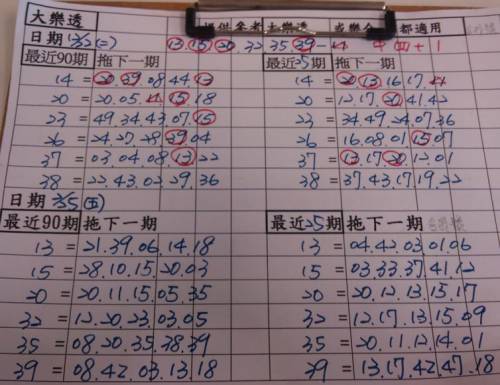 大樂透
提供參考大樂透 或樂合 都適用
日期 3/2(二) 13.15.20.32.35.39 = 中四+1
最近90期 拖下一期 最近25期 拖下一期
14 = 20.39.08.44.13 14 = 20.13.16.17.
20 = 20.05. .15.18 20 = 12.17.20.41.42
23 = 49.34.43.07.15 23 = 34.49.24.07.36
26 = 24.27.28.39.04 26 = 16.08.01.15.07
37 = 03.04.08.13.22 37 = 13.17.20.12.01
38 = 22.43.02.29.36 38 = 37.43.17.19.22
日期 3/5(五)
最近90期 拖下一期 最近25期 拖下一期
13 = 21.39.06.14.18 13 = 04.42.03.01.06
15 = 28.10.15.20.03 15 = 03.33.37.41.12
20 = 20.11.15.05.35 20 = 20.12.13.15.17
32 = 12.20.23.03.05 32 = 12.17.13.15.09
35 = 08.20.35.38.39 35 = 20.11.12.14.01
39 = 08.42.03.13.18 39 = 13.17.42.47.18